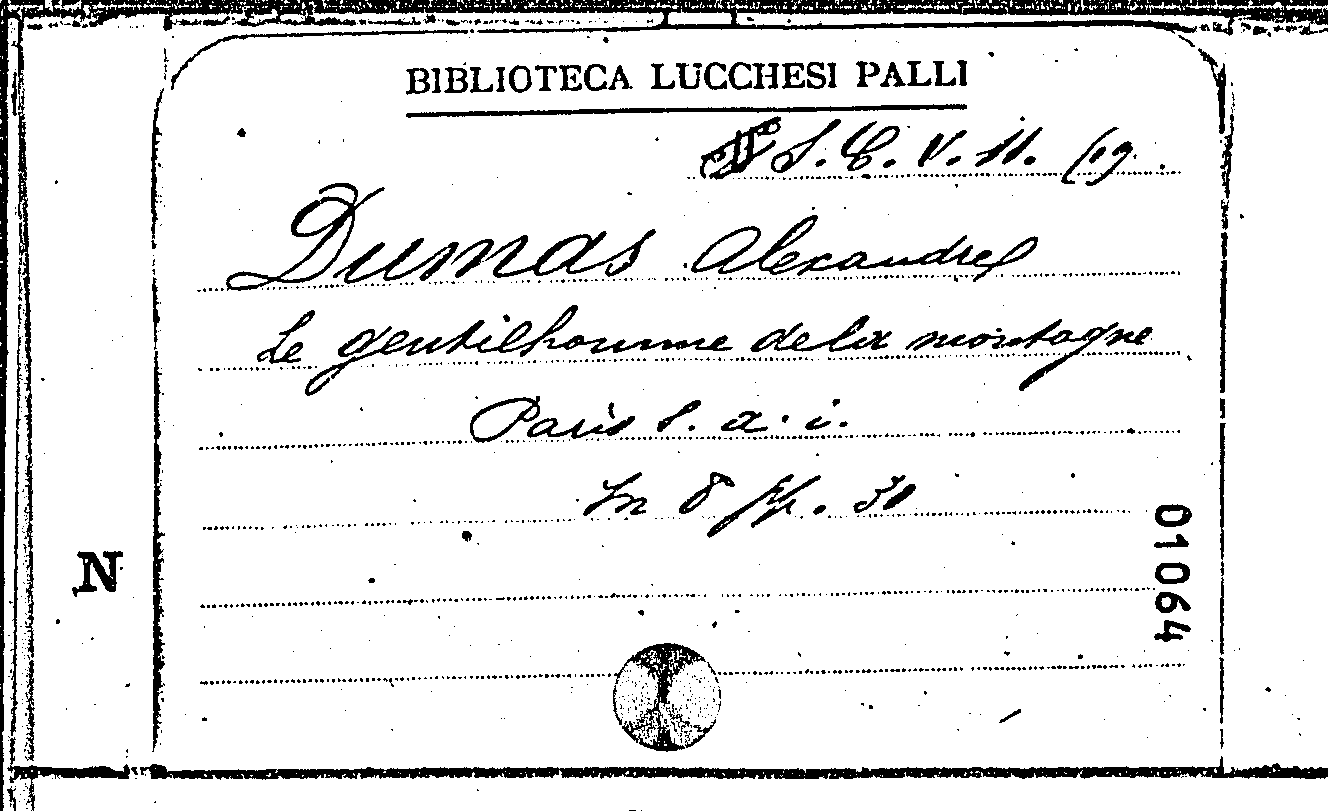 BIBLIOTECA LUCCHESI PALLI
S. C. V. 11. (19.
Dumas Alexandre
Le gentilhomme de la montagne
Paris s. a. i.
In 8 pp. 30
N
01064